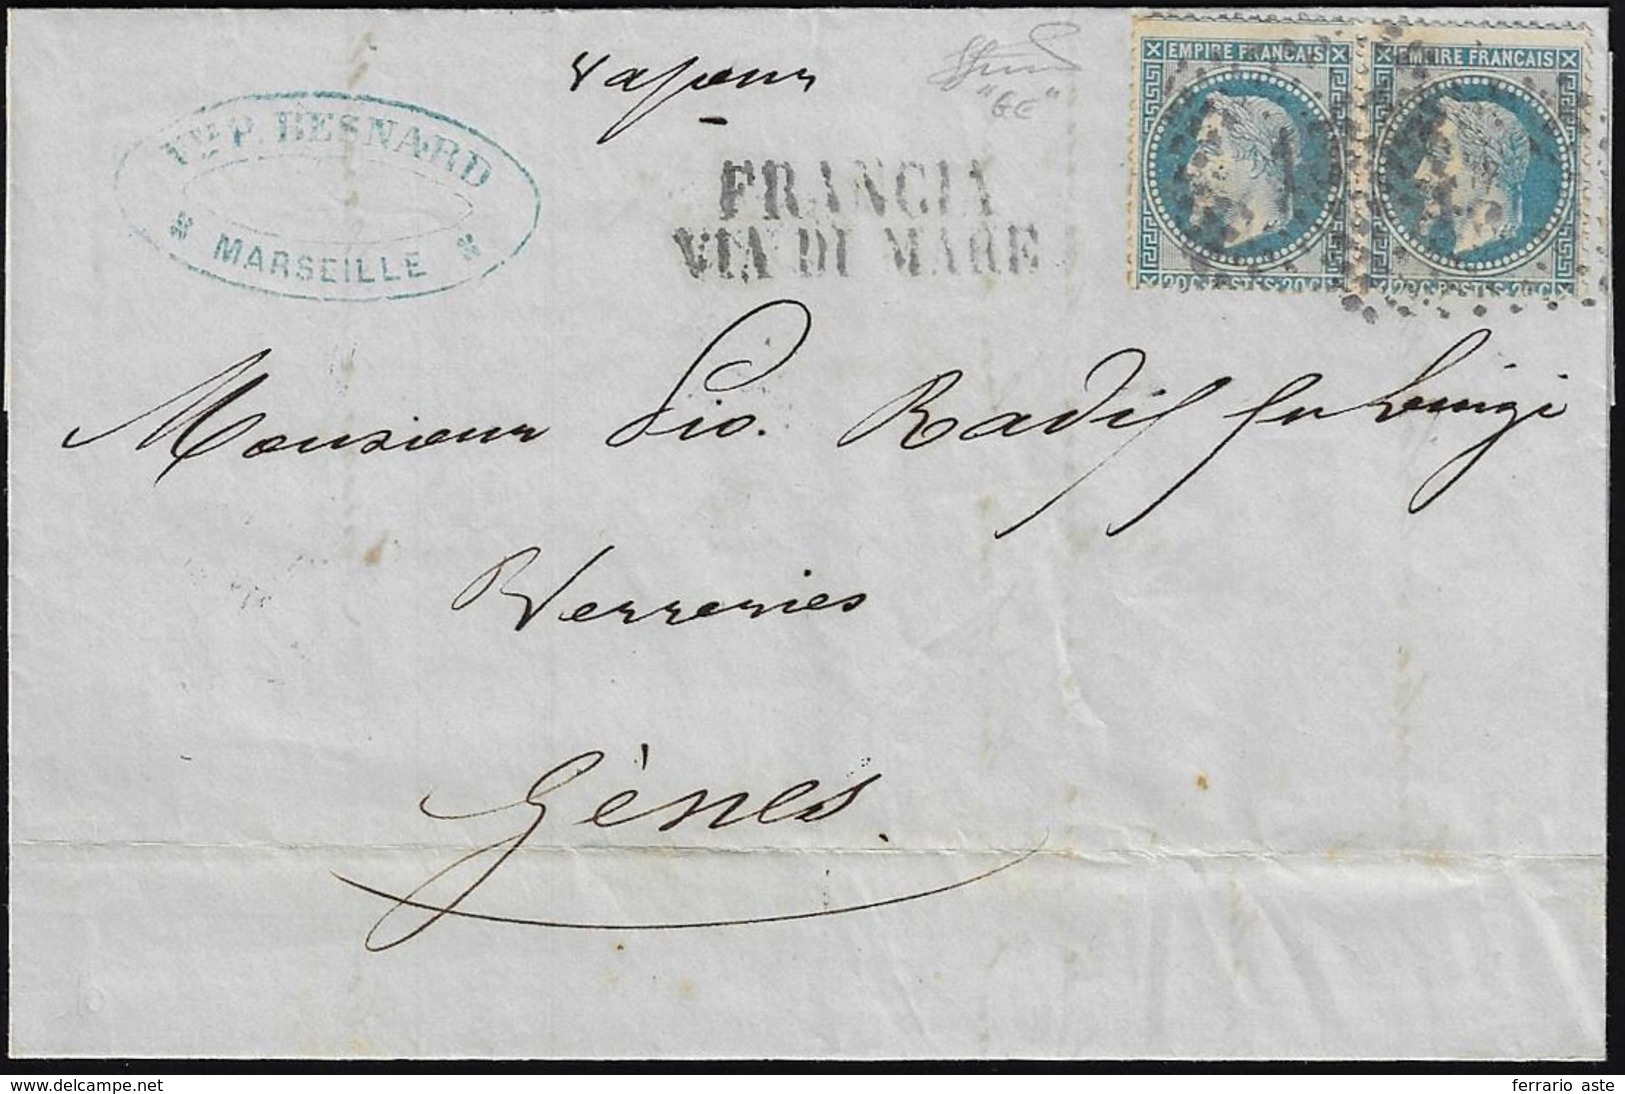 vapeur
"GE"
Fx P. BESNARD
MARSEILLE
FRANCIA
VIA DI MARE
EMPIRE FRANÇAIS
20 C. POSTES 20 C.
EMPIRE FRANÇAIS
20 C. POSTES 20 C.
Monsieur Pio. Radif fu Luigi
Verreries
Gènes.
www.delcampe.net
ferrario aste